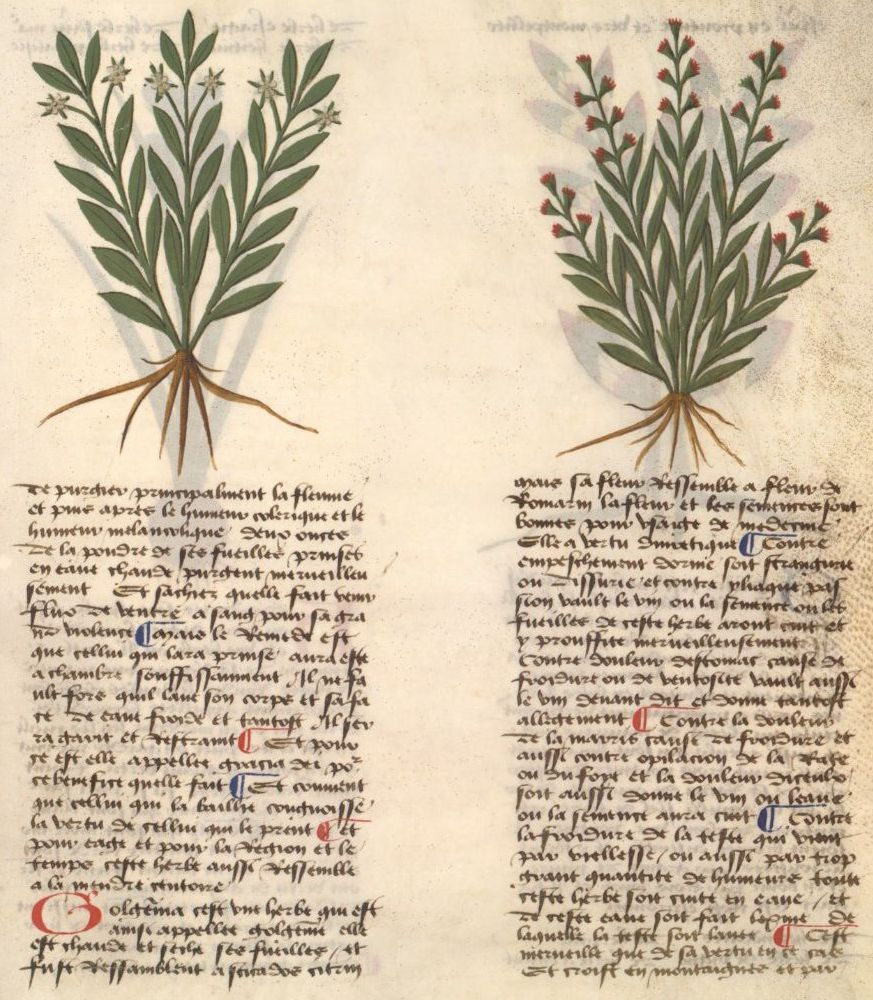 de purgier principalment la fleume
et puis apres le humeur colerique et le
humeur melancolique deux onces
de la poudre de ses fueilles prinses
en eaue chaude purgent merveilleu
sement Et sachiez quelle fait venir
flux de ventre a sang pour sa gra
nd violence ¶ Mais le Remede est
que cellui qui lara prinse aura este
a chambre souffissanment Il ne fa
ult fors quil lave son corps et sa fa
ce de eaue froide et tantost Il ser
ra gavit et Restraint ¶ Et pour
ce est elle appellee gracia dei por
ce benefice quelle fait ¶ Et convient
que cellui qui la baillie congnoisse
la vertu de cellui qui le prent ¶ et
pour eage et pour la Region et le
temps ceste herbe aussi Ressemble
a la mendre centoire
Golgema cest une herbe qui est
ainsi appellee golgeme elle
est chaude et seche ses fueilles et
fust Ressamblent a sticados citrin
mais sa fleur Ressemble a fleur de
Romarin la fleur et les semences sont
bonnes pour usaige de medecine
Elle a vertu diuretique ¶ Contre
empeschement dorine soit stranguria
ou dissurie et contre yliaque pas
sion vault le vin ou la semence ou les
fueilles de ceste herbe aront cuit et
y prouffite merveilleusement
Contre douleur destomac cause de
froidure ou de ventosite vault aussi
le vin devant dit et donne tantost
allegement ¶ Contre la douleur
de la mavris cause de froidure et
aussi contre opilacion de la Rate
ou du foye et la douleur diceulx
soit aussi donne le vin ou leaue
ou la semence aura cuit ¶ Contre
la froidure de la teste qui vient
par viellesse ou aussi par trop
grant quantite de humeurs toute
ceste herbe soit cuite en eaue et
de ceste eaue soit fait lexive de
laquelle la teste soit lavee ¶ Cest
merveille que de sa vertu en ce cas
Et croist en montaignes et par